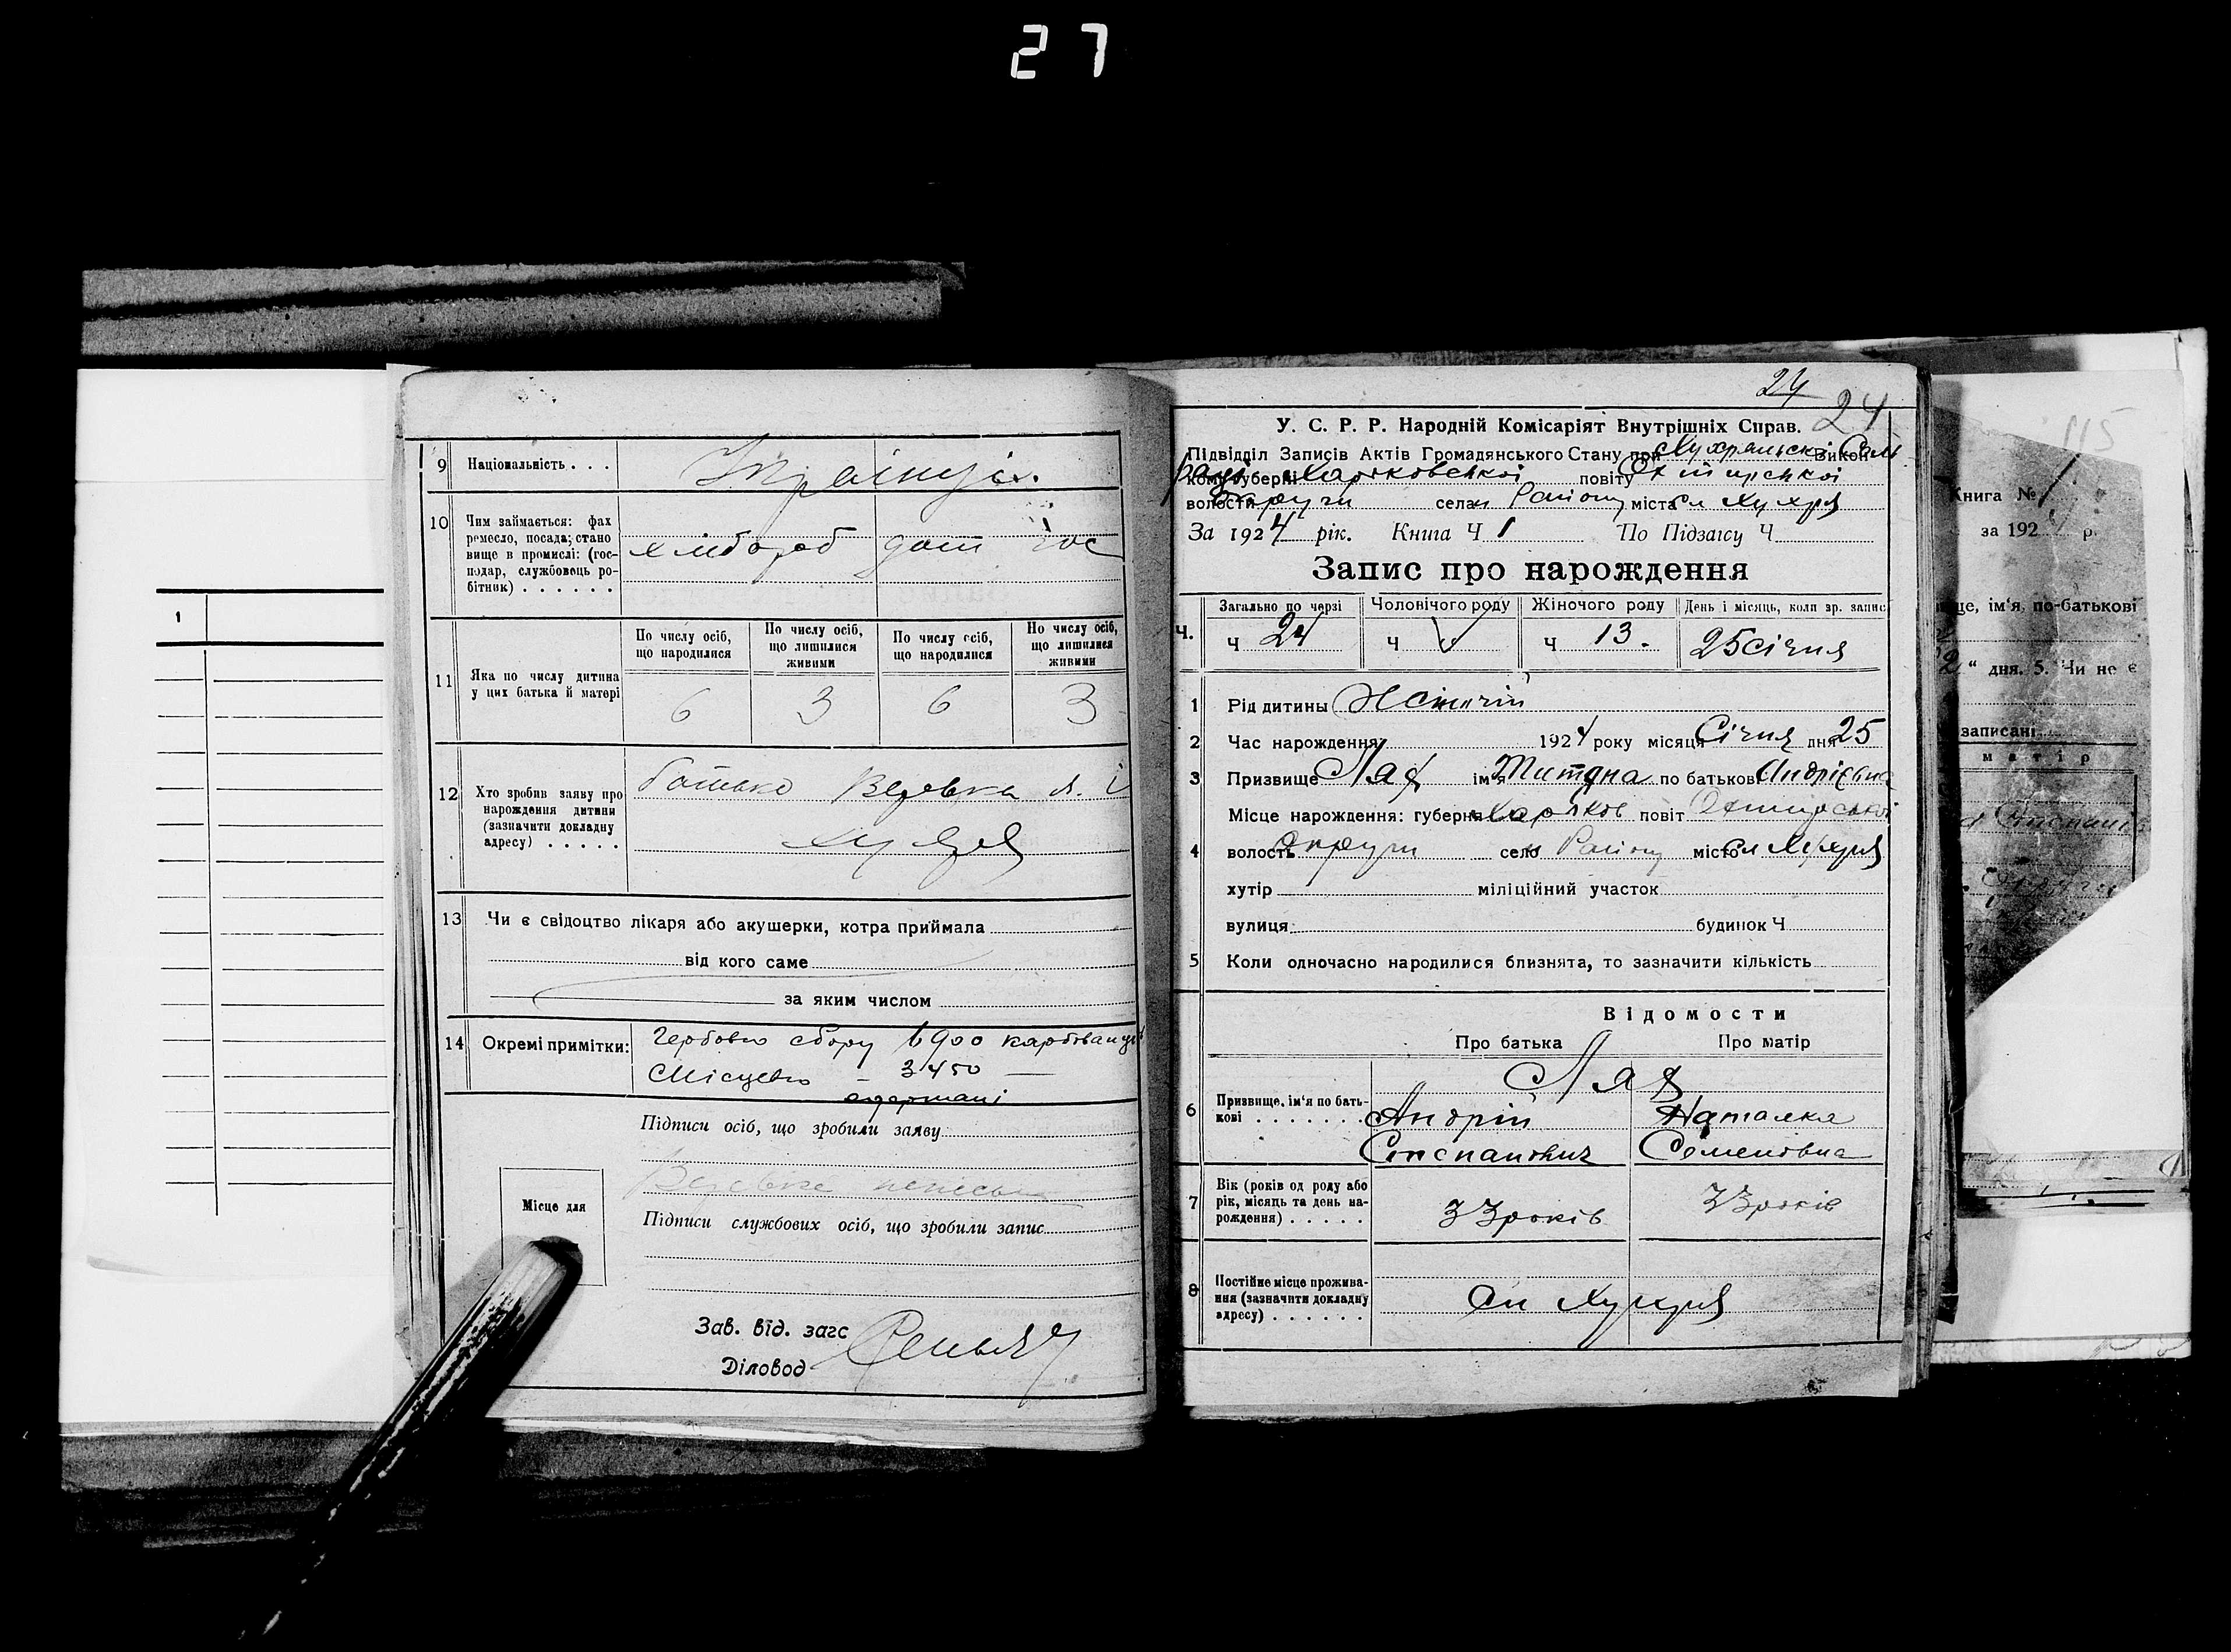 27
9 Національність . . . Українці.
10 Чим займається: фах
ремесло, посада; стано
вище в промислі: (гос-
подар, службовець ро-
бітник) . . . . . .
хлібороб дом гос
11 Яка по числу дитина
у цих батька й матері
По числу осіб,
що народилися
По числу осіб,
що лишилися
живими
По числу осіб,
що народилися
По числу осіб,
що лишилися
живими
6 3 6 3
12 Хто зробив заяву про
нарождення дитини
(зазначити докладну
адресу) . . . . .
батько
13 Чи є свідоцтво лікаря або акушерки, котра приймала
від кого саме
за яким числом
14 Окремі примітки:
Гербово сбору 6900 карбованців
Місцево – 3450 —
одержані
Підписи осіб, що зробили заяву
Місце для
Підписи службових осіб, що зробили запис
Зав. від. загс
Діловод
24
24
У. С. Р. Р. Народній Комісаріят Внутрішніх Справ.
Підвідділ Записів Актів Громадянського Стану при Викон-
кому губерні Харьковської повіту
волости Округи села Району міста Хухря
За 1924 рік. Книга Ч 1 По Підзагсу Ч
Запис про нарождення
Ч. Загально по черзі Чоловічого роду Жіночого роду День і місяць, коли зр. запис
Ч 24 Ч Ч 13. 25 січня
1 Рід дитины Жіночій
2 Час нарождення 1924 року місяця Січня дня 25
3 Призвище ім'я Титяна по батькові Андрієвна
4 Місце нарождення: губерня Харьков повіт Охтирської
волость Округи село Району місто Хухря
хутір міліційний участок
вулиця будинок Ч
5 Коли одночасно народилися близнята, то зазначити кількість
Відомости
Про батька Про матір
6 Призвище, ім'я по бать-
кові . . . . . . .
Андрій Наталка
Степанович Семеновна
7 Вік (років од роду або
рік, місяць та день на-
рождення) . . . . .
33 років 33 років
8 Постійне місце прожива-
ння (зазначити докладну
адресу) . . . . . .
Хухря
1
115
Книга № 1
за 192 р.
ще, ім'я, по-батькові
2" дня. 5. Чи не є
записані
матір